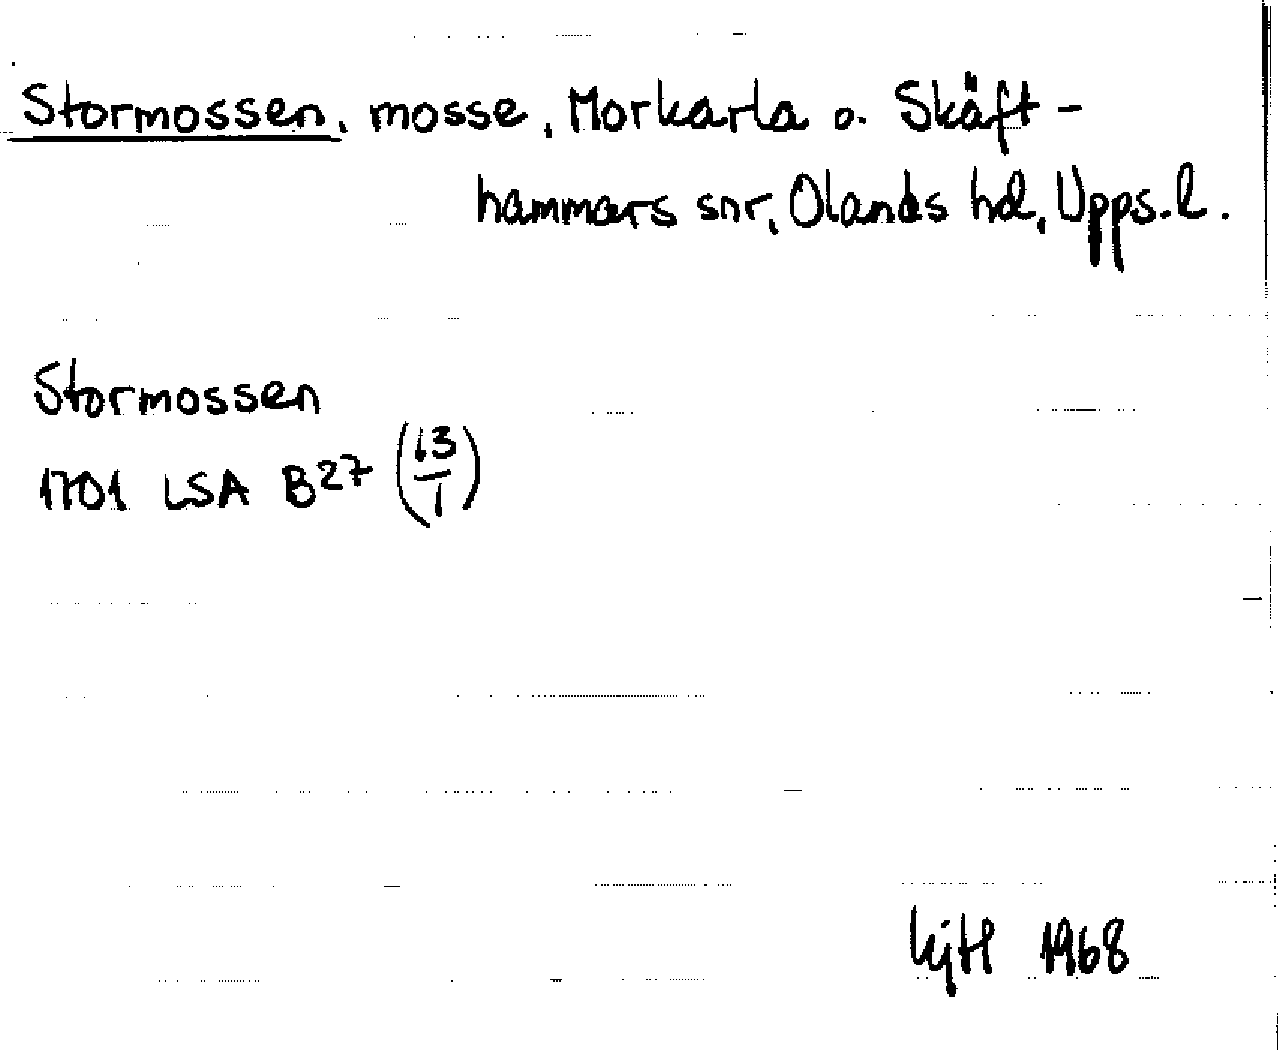 Stormossen, mosse, Morkarla o. Skäft-
hammars snr, Olands hd, Upps. l.
Stormossen
1701 LSA B27 (13/1)
1968